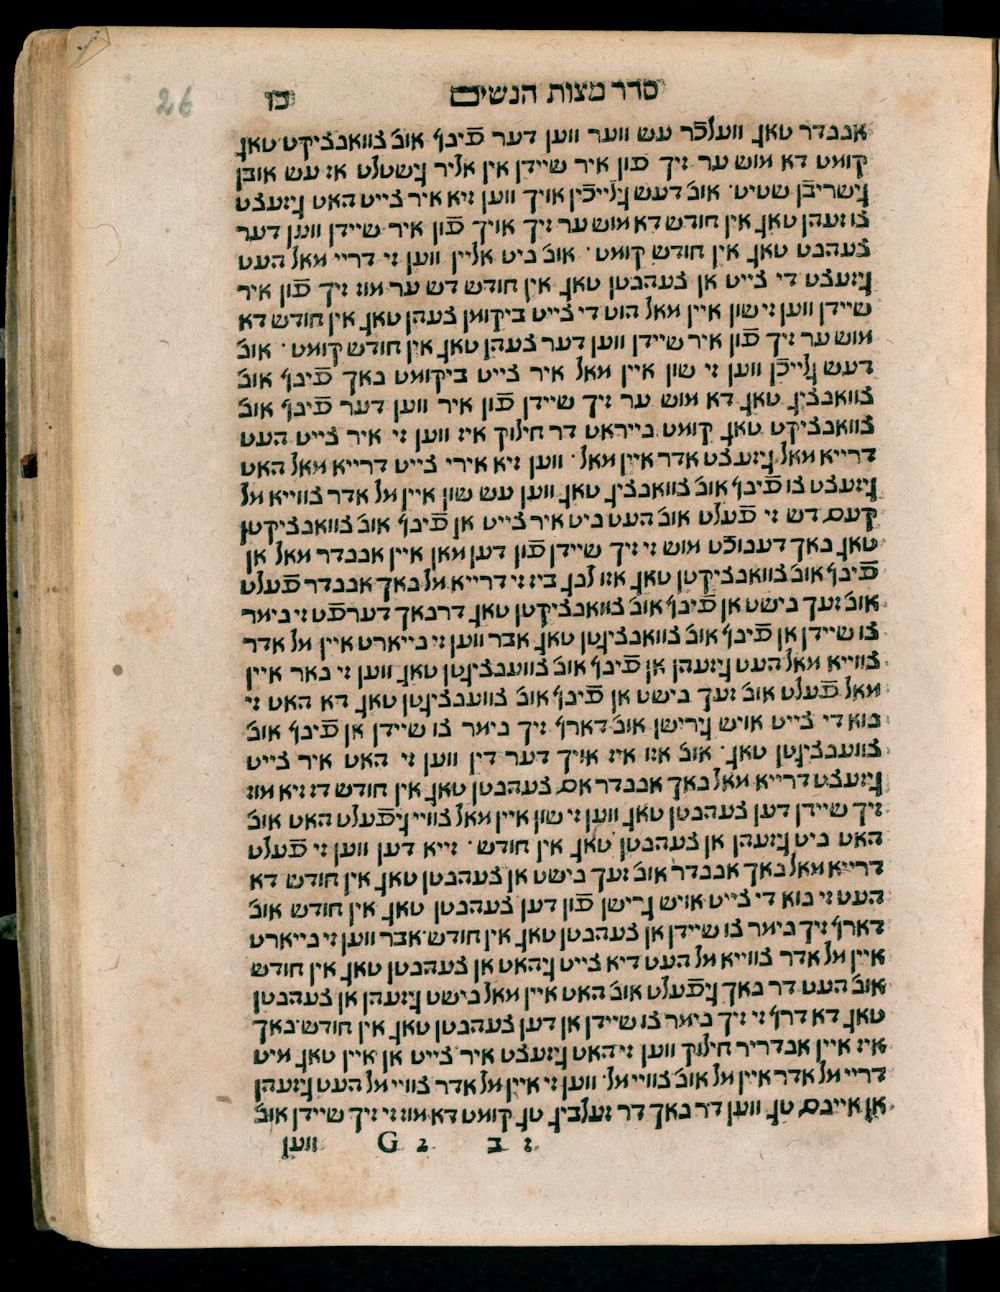 26 סדר מצות הנשים כו
אנבדר טאג וועלכֿר עש ווער ווען דער פֿינף אונ׳ צוואנציקט טאג
קומט דא מוש ער זיך פֿון איר שיידן אין אליר גישטלט אז עש אובן
גישריבֿן שטיט · אונ׳ דעש גֿלייכֿין אויך ווען זיא איר צייט האט גיזעצט
צו זעהן טאג אין חודש דא מוש ער זיך אויך פֿון איר שיידן ווען דער
צעהנט טאג אין חודש קומט · אונ׳ ניט אליין ווען זי דריי מאל העט
גיזעצט די צייט אן צעהנטן טאג אין חודש דש ער מוז זיך פֿון איר
שיידן ווען זי שון איין מאל הוט די צייט ביקומן צעהן טאג אין חודש דא
מוש ער זיך פֿון איר שיידן ווען דער צעהן טאג אין חודש קומט · אונ׳
דעש גלייכֿן ווען זי שון איין מאל איר צייט ביקומט נאך פֿינף אונ׳
צוואנציג טאג דא מוש ער זיך שיידן פֿון איר ווען דער פֿינף אונ׳
צוואנציקט טאג קומט נייראט דר חילוק איז ווען זי איר צייט העט
דרייא מאל גיזעצט אדר איין מאל · ווען זיא אירי צייט דרייא מאל האט
גיזעצט צו פֿינף אונ׳ צוואנציג טאג ווען עש שון איין מל אדר צווייא מל
קעם דש זי פֿעלט אונ׳ העט ניט איר צייט אן פֿינף אונ׳ צוואנציקטן
טאג נאך דענוכֿט מוש זי זיך שיידן פֿון דען מאן איין אנבדר מאל אן
פֿינף אונ׳ צוואנציקטן טאג אזו לנג ביז זי דרייא מל נאך אנבדר פֿעלט
אונ׳ זעך נישט אן פֿינף אונ׳ צוואנציקטן טאג דרנאך דערפֿט זי נימר
צו שיידן אן פֿינף אונ׳ צוואנציגטן טאג אבר ווען זי נייארט איין מל אדר
צווייא מאל העט גיזעהן אן פֿינף אונ׳ צווענציגטן טאג ווען זי נאר איין
מאל פֿעלט אונ׳ זעך נישט אן פֿינף אונ׳ צווענציגטן טאג דא האט זי
נוא די צייט אויש גירישן אונ׳ דארף זיך נימר צו שיידן אן פֿינף אונ׳
צווענציגטן טאג · אונ׳ אזו איז אויך דער דין ווען זי האט איר צייט
גיזעצט דרייא מאל נאך אנבדר אם צעהנטן טאג אין חודש דז זיא מוז
זיך שיידן דען צעהנטן טאג ווען זי שון איין מאל צוויי גיפֿעלט האט אונ׳
האט ניט גיזעהן אן צעהנטן טאג אין חודש · זייא דען ווען זי פֿעלט
דרייא מאל נאך אנבדר אונ׳ זעך נישט אן צעהנטן טאג אין חודש דא
העט זי נוא די צייט אויש גרישן פֿון דען צעהנטן טאג אין חודש אונ׳
דארף זיך נימר צו שיידן אן צעהנטן טאג אין חודש · אבר ווען זי נייארט
איין מל אדר צווייא מל העט דיא צייט גיהאט אן צעהנטן טאג אין חודש
אונ׳ העט דר נאך גיפֿעלט אונ׳ האט איין מאל נישט גיזעהן אן צעהנטן
טאג דא דרף זי זיך נימר צו שיידן אן דען צעהנטן טאג אין חודש · נאך
איז איין אנדריר חילוק ווען זי האט גיזעצט איר צייט אן איין טאג מיט
דריי מל אדר איין מל אונ׳ צוויי מל · ווען זי איין מל אדר צוויי מל העט גיזעהן
אן איינם טג ווען דר נאך דר זעלביג טג קומט דא מוז זי זיך שיידן אונ׳
ז ב G 2 ווען